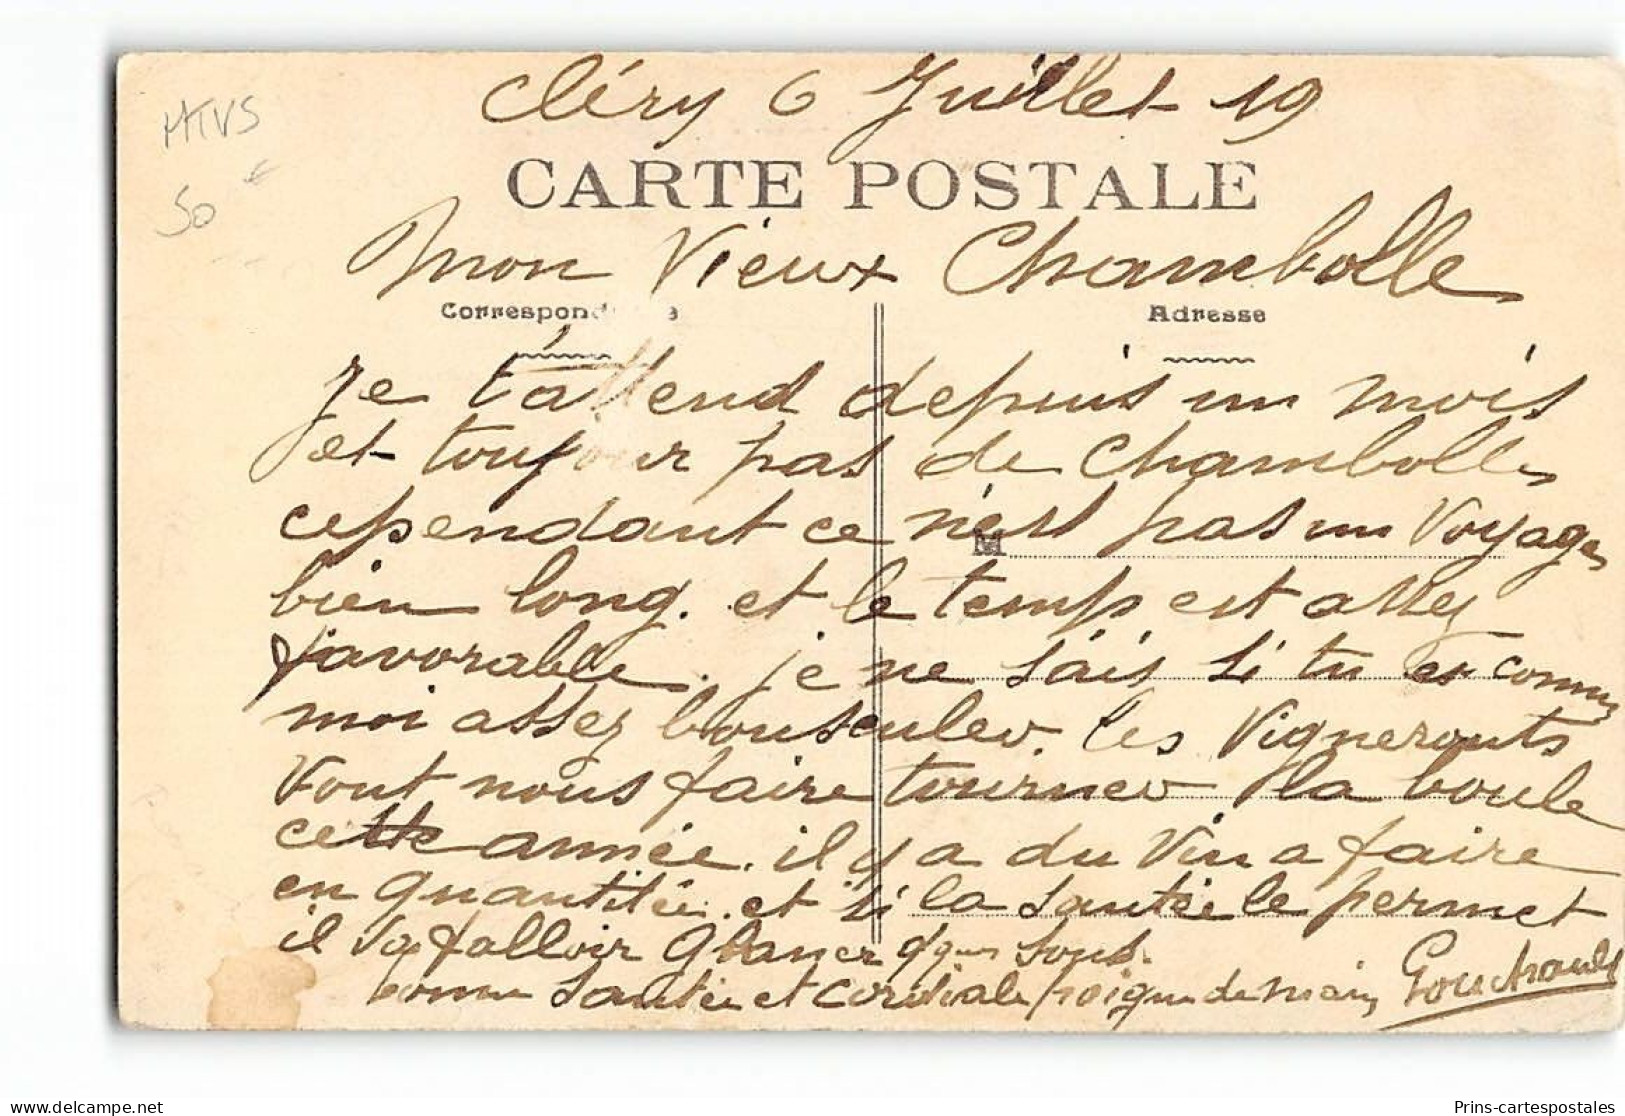 MTVS
50 €
Cléry 6 Juillet 19
CARTE POSTALE
Mon Vieux Chambolle
Correspondance
Adresse
Je t'attend depuis un mois
et toujour pas de Chambolle
cependant ce n'est pas un Voyage
M
bien long. et le temps est assez
favorable. je ne sais si tu es comme
moi assez bousculer. les Vigneronts
Vont nous faire tourner la boule
cette année. il y a du Vin a faire
en quantitée. et si la santée le permet
il va falloir Glaner qques sous.
bonne santée et cordiale poignee de main
Delcampe.net
Prins-cartespostales